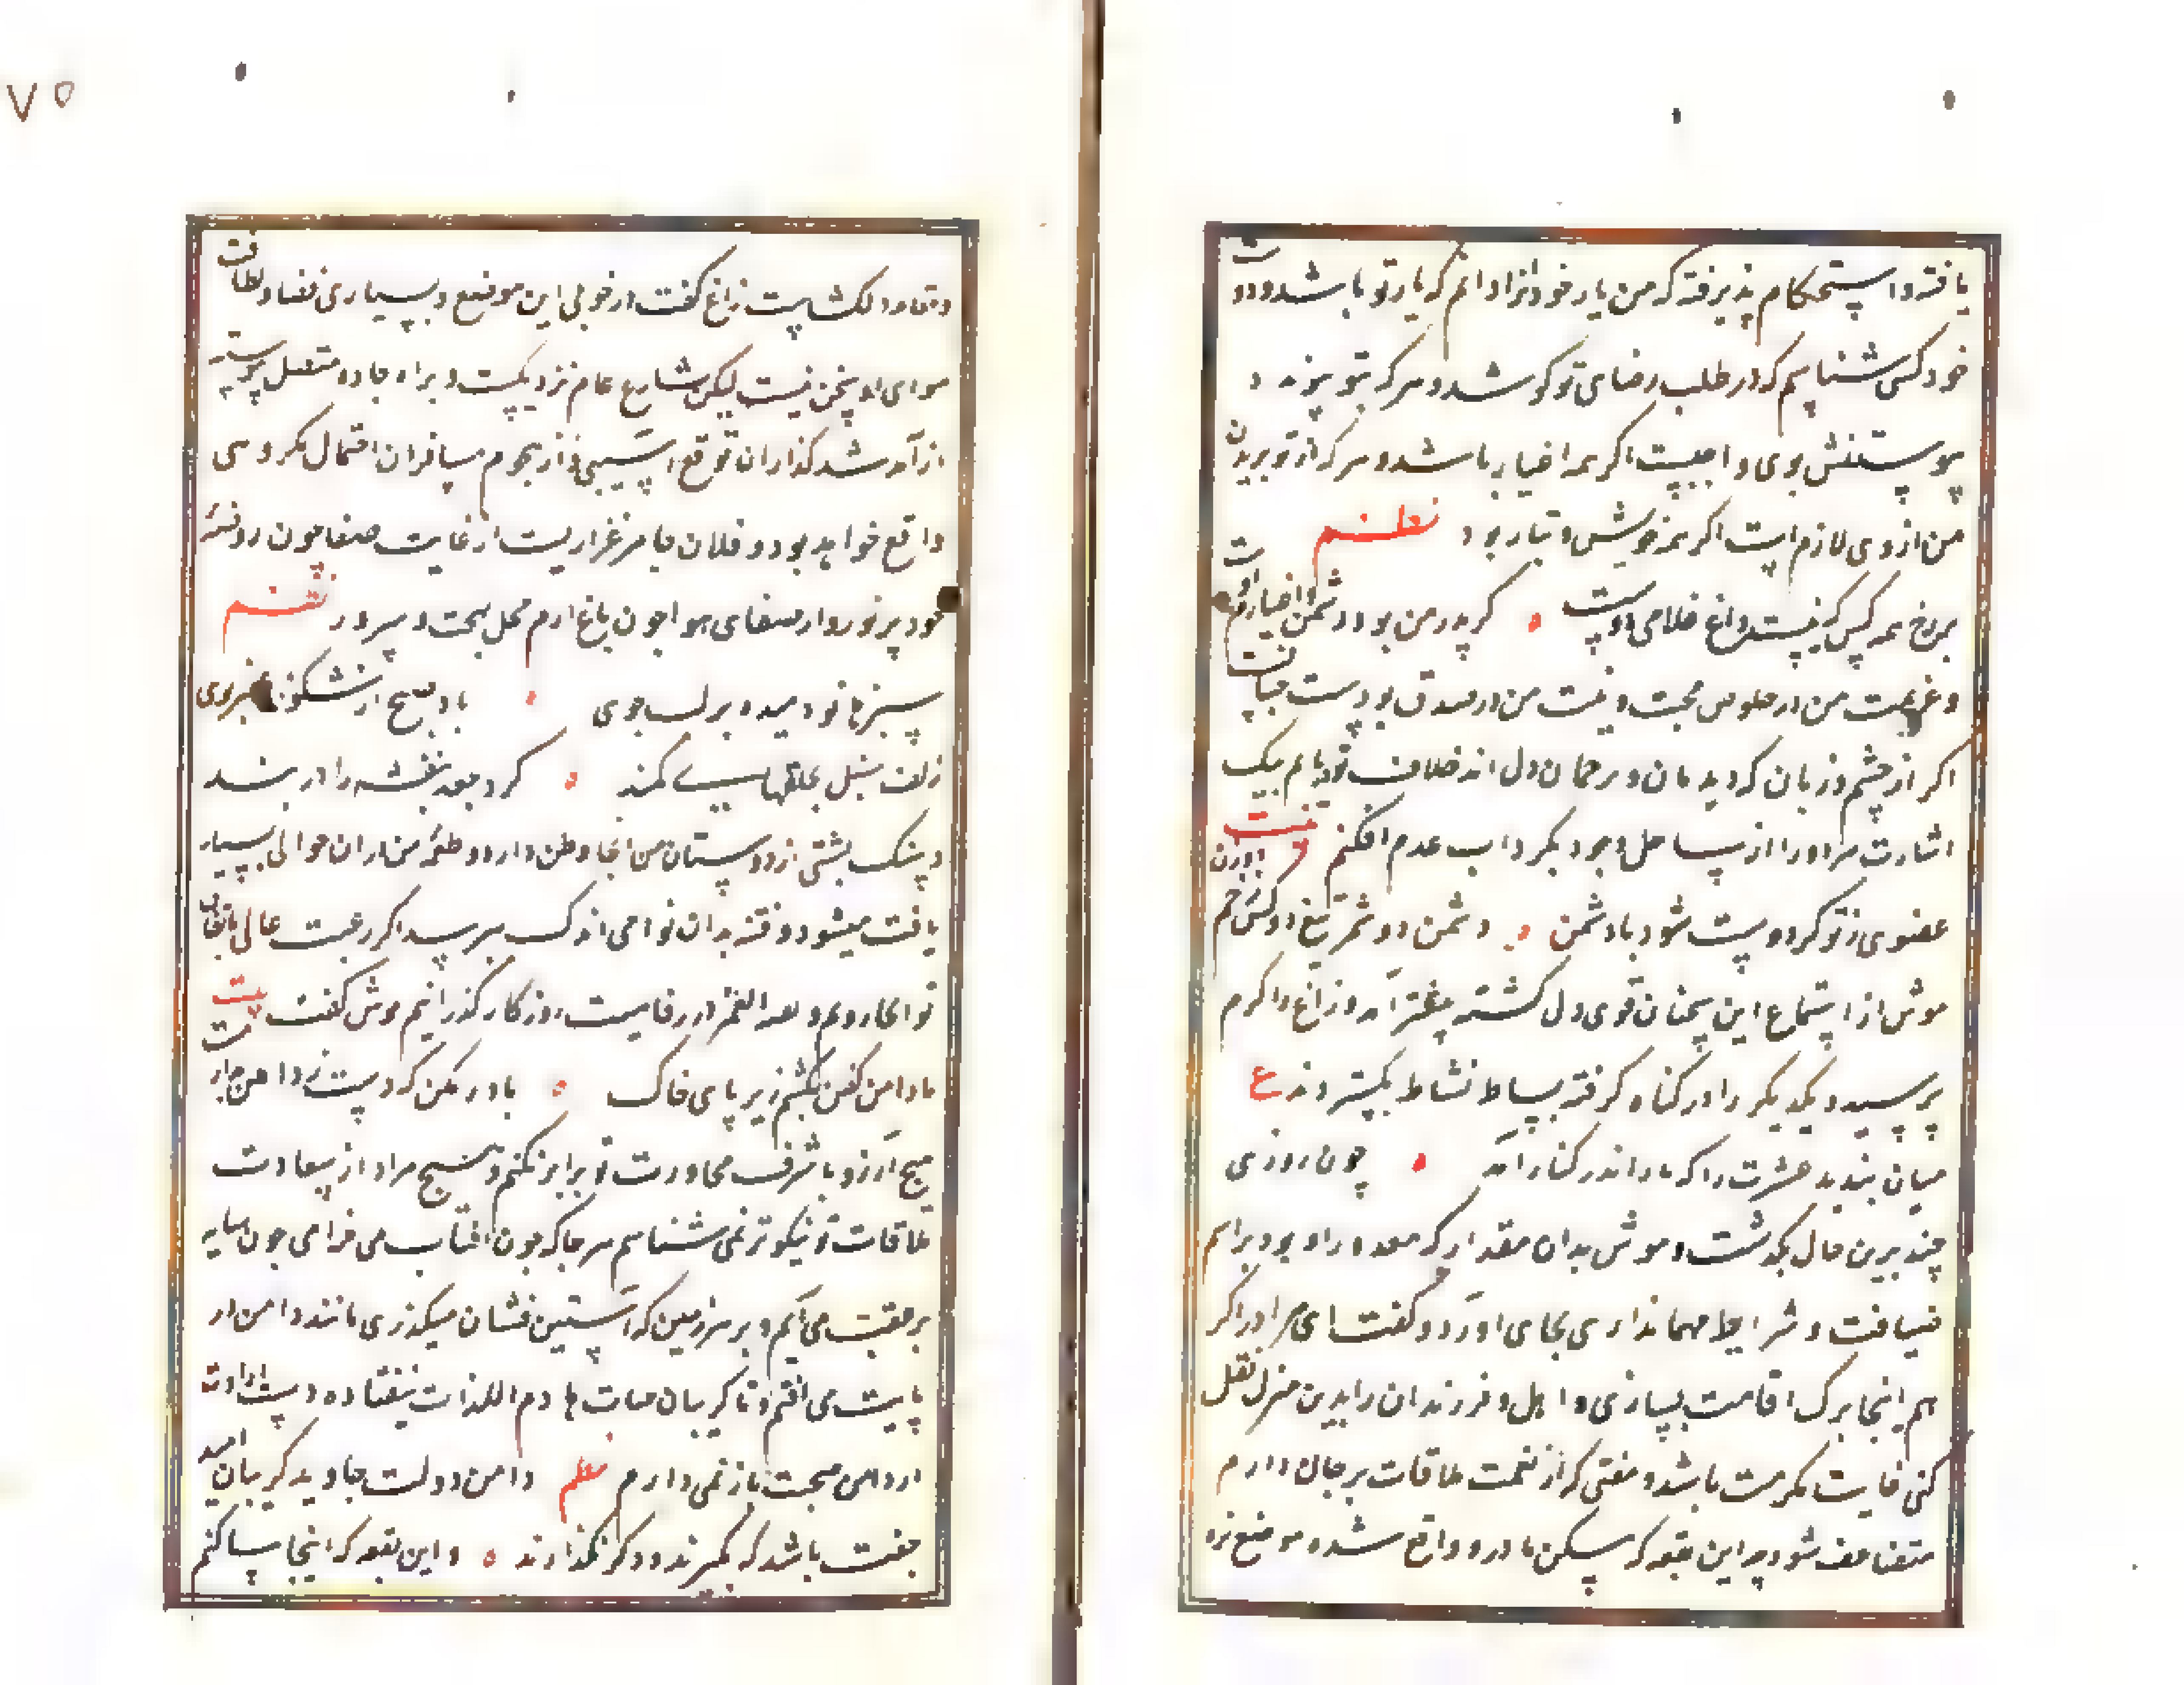 یافته و استحکام پذیرفته که من یار خود انرا دانم که یار تو باشد و دوست
خود کسی شناسم که در طلب رضای تو کوشد و هر که بتو پیوندد
پیوستنش بوی واجبست اکر همه اغیار باشد و هر که از تو بریدن
من از وی لازم است اکر همه خویش و تبار بود نظم
بر رخ همه کس که نیست داغ غلامی اوست کر پدر من بود دشمن و اغیار اوست
و عزیمت من در خلوص محبت و نیت من در صدق مودت
اکر از چشم و زبان که دیدبان و ترجمان دل اند خلاف تو یابم بیک
اشارت هر دو را از ساحل وجود بکرداب عدم افکنم
عضوی ز تو کر دوست شود با دشمن دشمن دو شمر تیغ دو کش زخم دو زن
موش از استماع این سخنان قوی دل کشته پیشتر آمد و زاغ را کرم
پرسید و یکدیکر را در کنار کرفته بساط نشاط بکستردند ع
میان بندید عشرت را که یار اندر کنار آمد چون روزی
چند برین حال بکذشت و موش بدان مقدار که مقدور او بود مراسم
ضیافت و شرایط مهمانداری بجای اورد و کفت ای برادر اکر
هم اینجا برک اقامت بسازی و اهل و فرزندان را بدین منزل نقل
کنی غایت مکرمت باشد و منتی که از نعمت ملاقات بر جان دارم
متضاعف شود چه این بقعه که مسکن ما درو واقع شده موضع نزه
و مقام دلکشاست زاغ کفت در خوبی این موضع و بسیاری فضا و لطافت
هوای او سخن نیست لیکن بشارع عام نزدیکست و براه جاده متصل پیوسته
از آمد شد کذاران توقع آسیبی و از هجوم مسافران احتمال مکروهی
واقع خواهد بود و فلان جا مرغزاریست از غایت صفا چون روضه
خود پرنور و از صفای هوا چون باغ ارم محل بهجت و سرور نظم
سبزها نو دمیده بر لب جوی باد صبح از شکوفه عنبربوی
زلف سنبل بحلقهای کمند کرده جعد بنفشه را در بند
و سنک پشتی از دوستان من انجا وطن دارد و طعمه من دران حوالی بسیار
یافت میشود و فتنه بدان نواحی اندک میرسد اکر رغبت عالی باتفاق
تو انجا رویم و بقیة العمر در رفاهیت روزکار کذرانیم موش کفت بیت
تا دامن کفن نکشم زیر پای خاک باور مکن که دست ز دامن بدارمت
هیچ آرزو با شرف مجاورت تو برابر نکنم و هیچ مراد از سعادت
ملاقات تو نیکوتر نمی شناسم هر جا که چون آفتاب می خرامی چون سایه
بر عقب می آیم و بر هر زمین که آستین فشان میکذری مانند دامن در
پایت می افتم و تا کریبان حیات بدست هادم اللذات نیفتاده دست ارادت
از دامن صحبتت باز نمی دارم نظم دامن دولت جاوید و کریبان امید
حیف باشد که بکیرند و دکر بکذارند و این بقعه که اینجا ساکنم